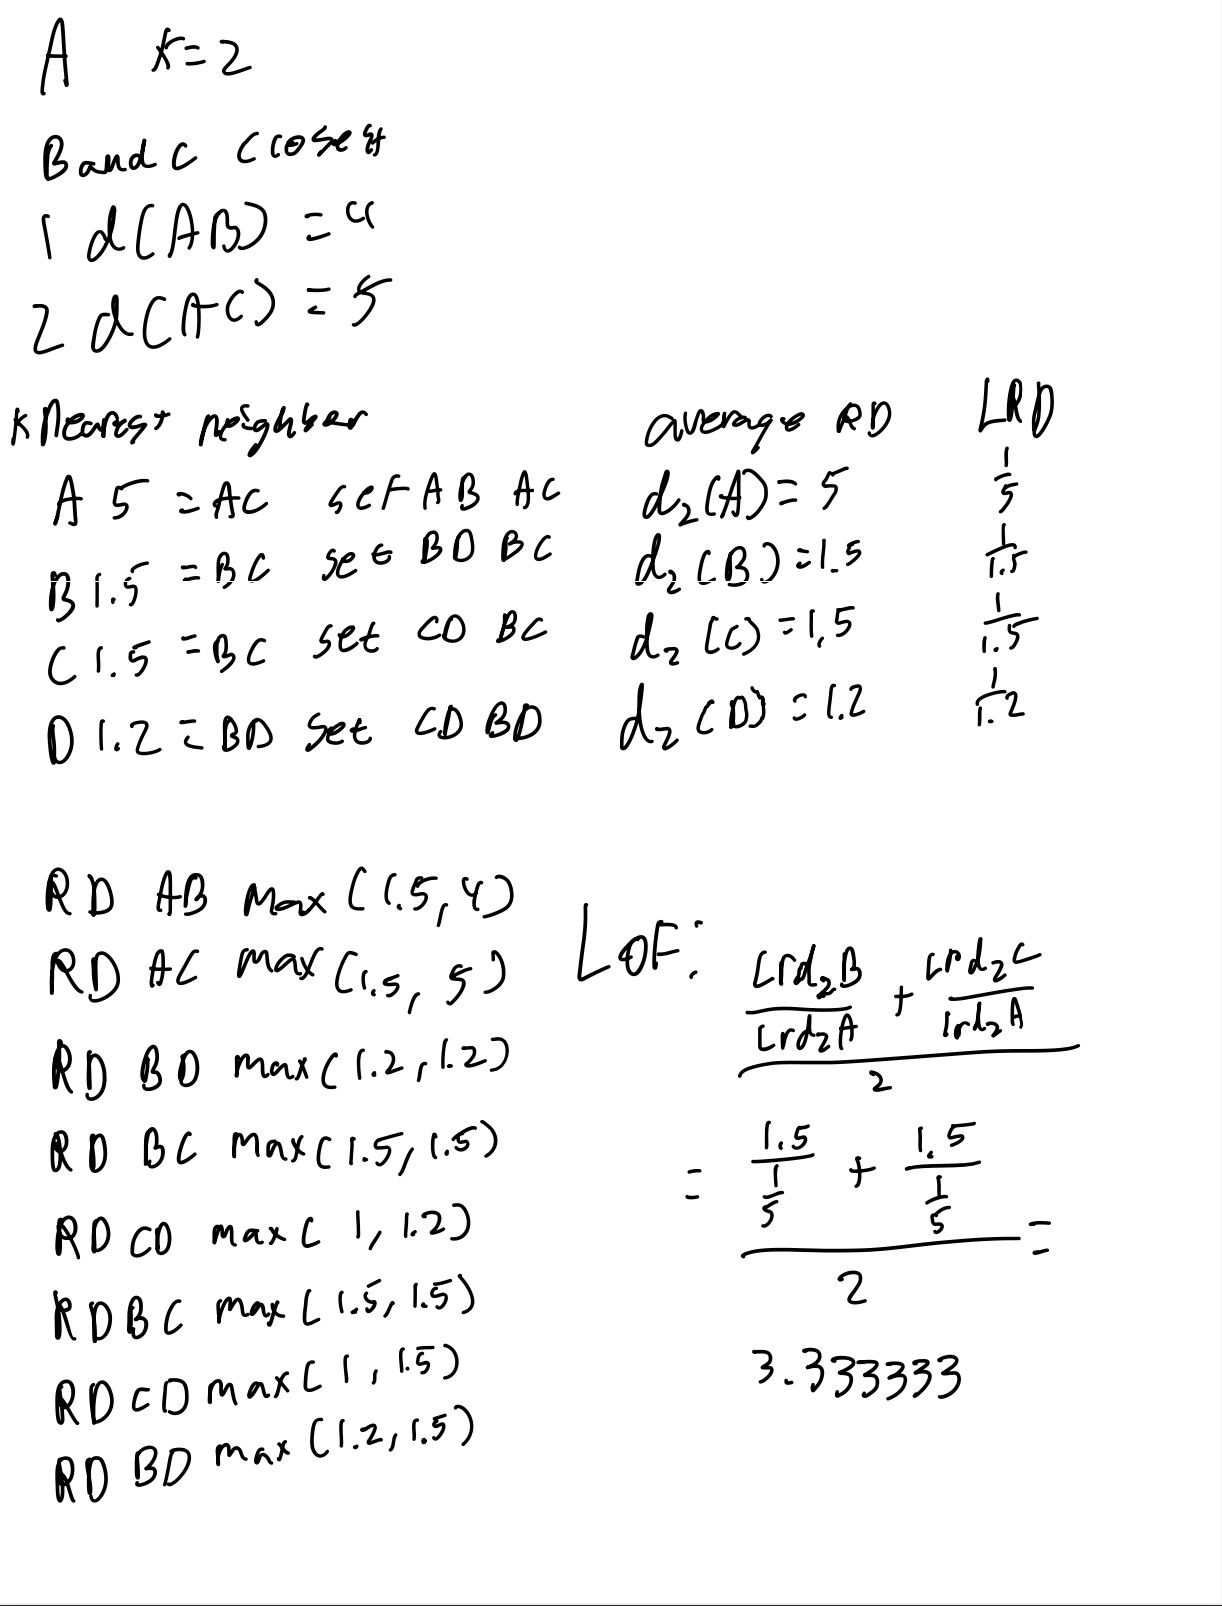 A K=2
B and C closest
1 d(AB) = 4
2 d(AC) = 5
K Nearest neighber average RD LRD
A 5 = AC set AB AC d₂(A) = 5 1/5
B 1.5 = BC set BD BC d₂(B) = 1.5 1/1.5
C 1.5 = BC set CD BC d₂(C) = 1,5 1/1.5
D 1.2 = BD set CD BD d₂(D) = 1.2 1/1.2
RD AB max(1.5, 4)
RD AC max(1.5, 5)
RD BD max(1.2, 1.2)
RD BC max(1.5, 1.5)
RD CD max(1, 1.2)
RD BC max(1.5, 1.5)
RD CD max(1, 1.5)
RD BD max(1.2, 1.5)
LOF:
Lrd₂B Lrd₂C
+
Lrd₂A lrd₂A
2
= 1.5 + 1.5 =
1/5 1/5
2
3.333333